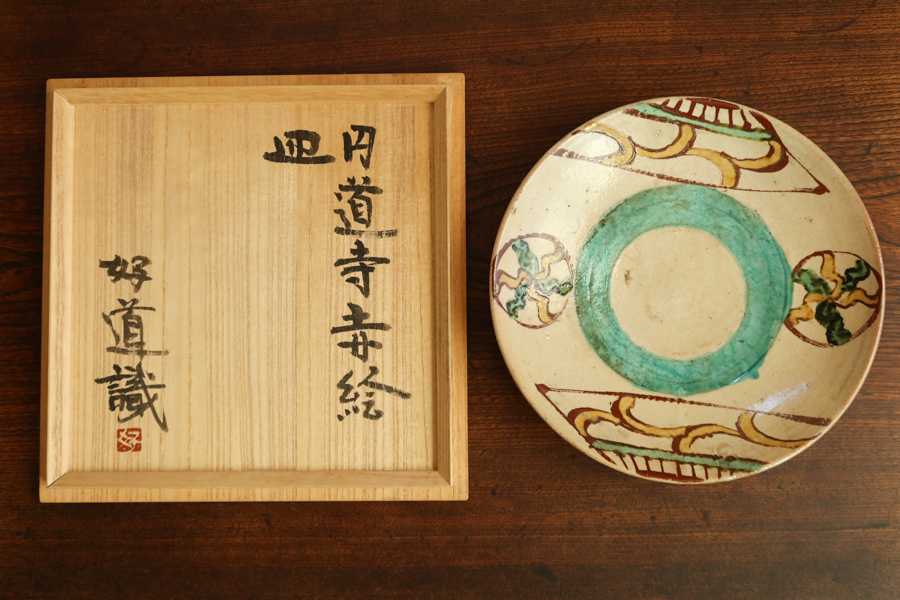 円道寺赤絵
皿
好道識
好